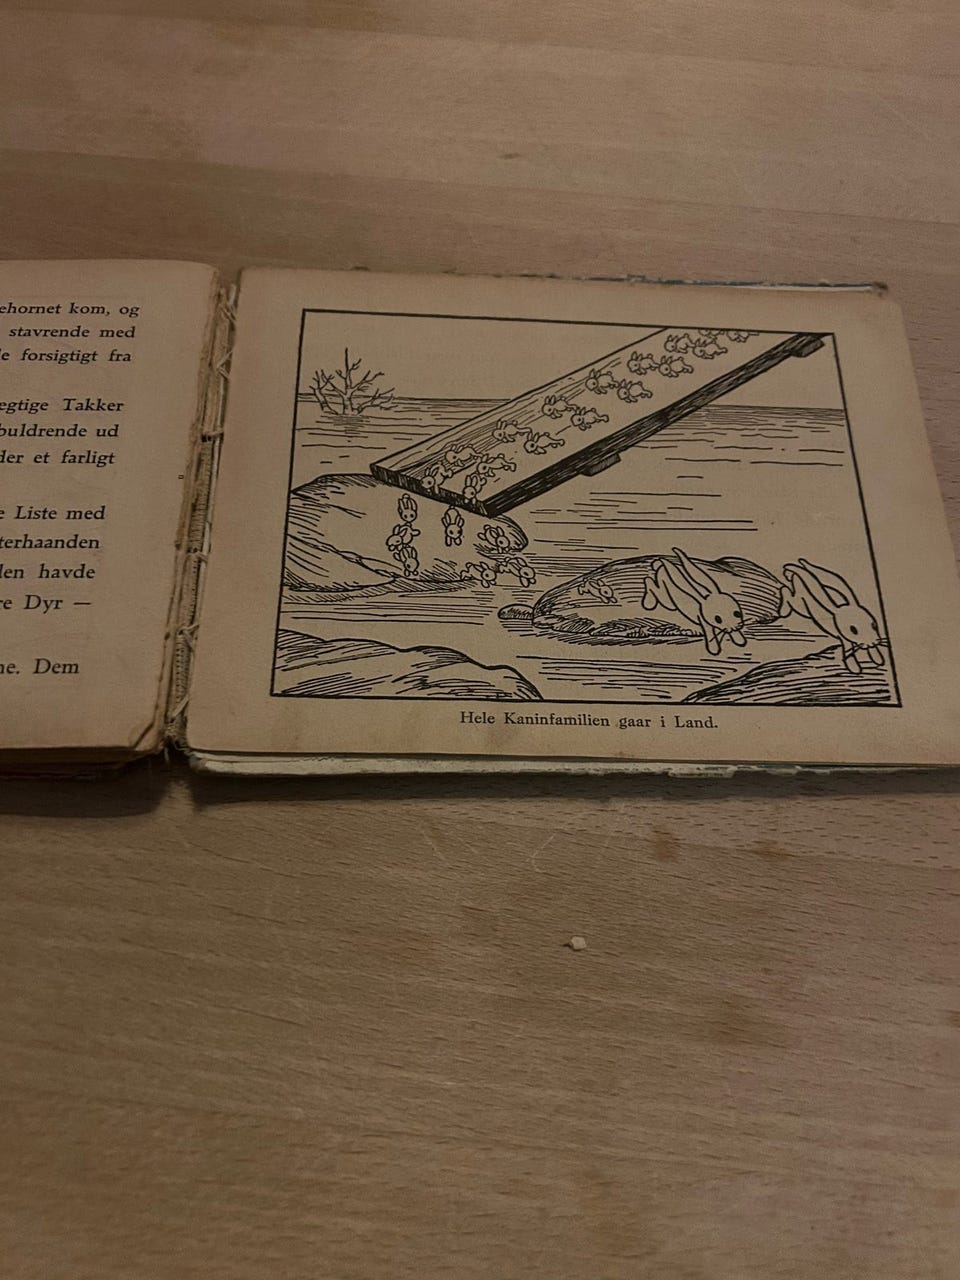 ehornet kom, og
stavrende med
e forsigtigt fra
egtige Takker
buldrende ud
der et farligt
e Liste med
terhaanden
len havde
re Dyr —
ne. Dem
Hele Kaninfamilien gaar i Land.